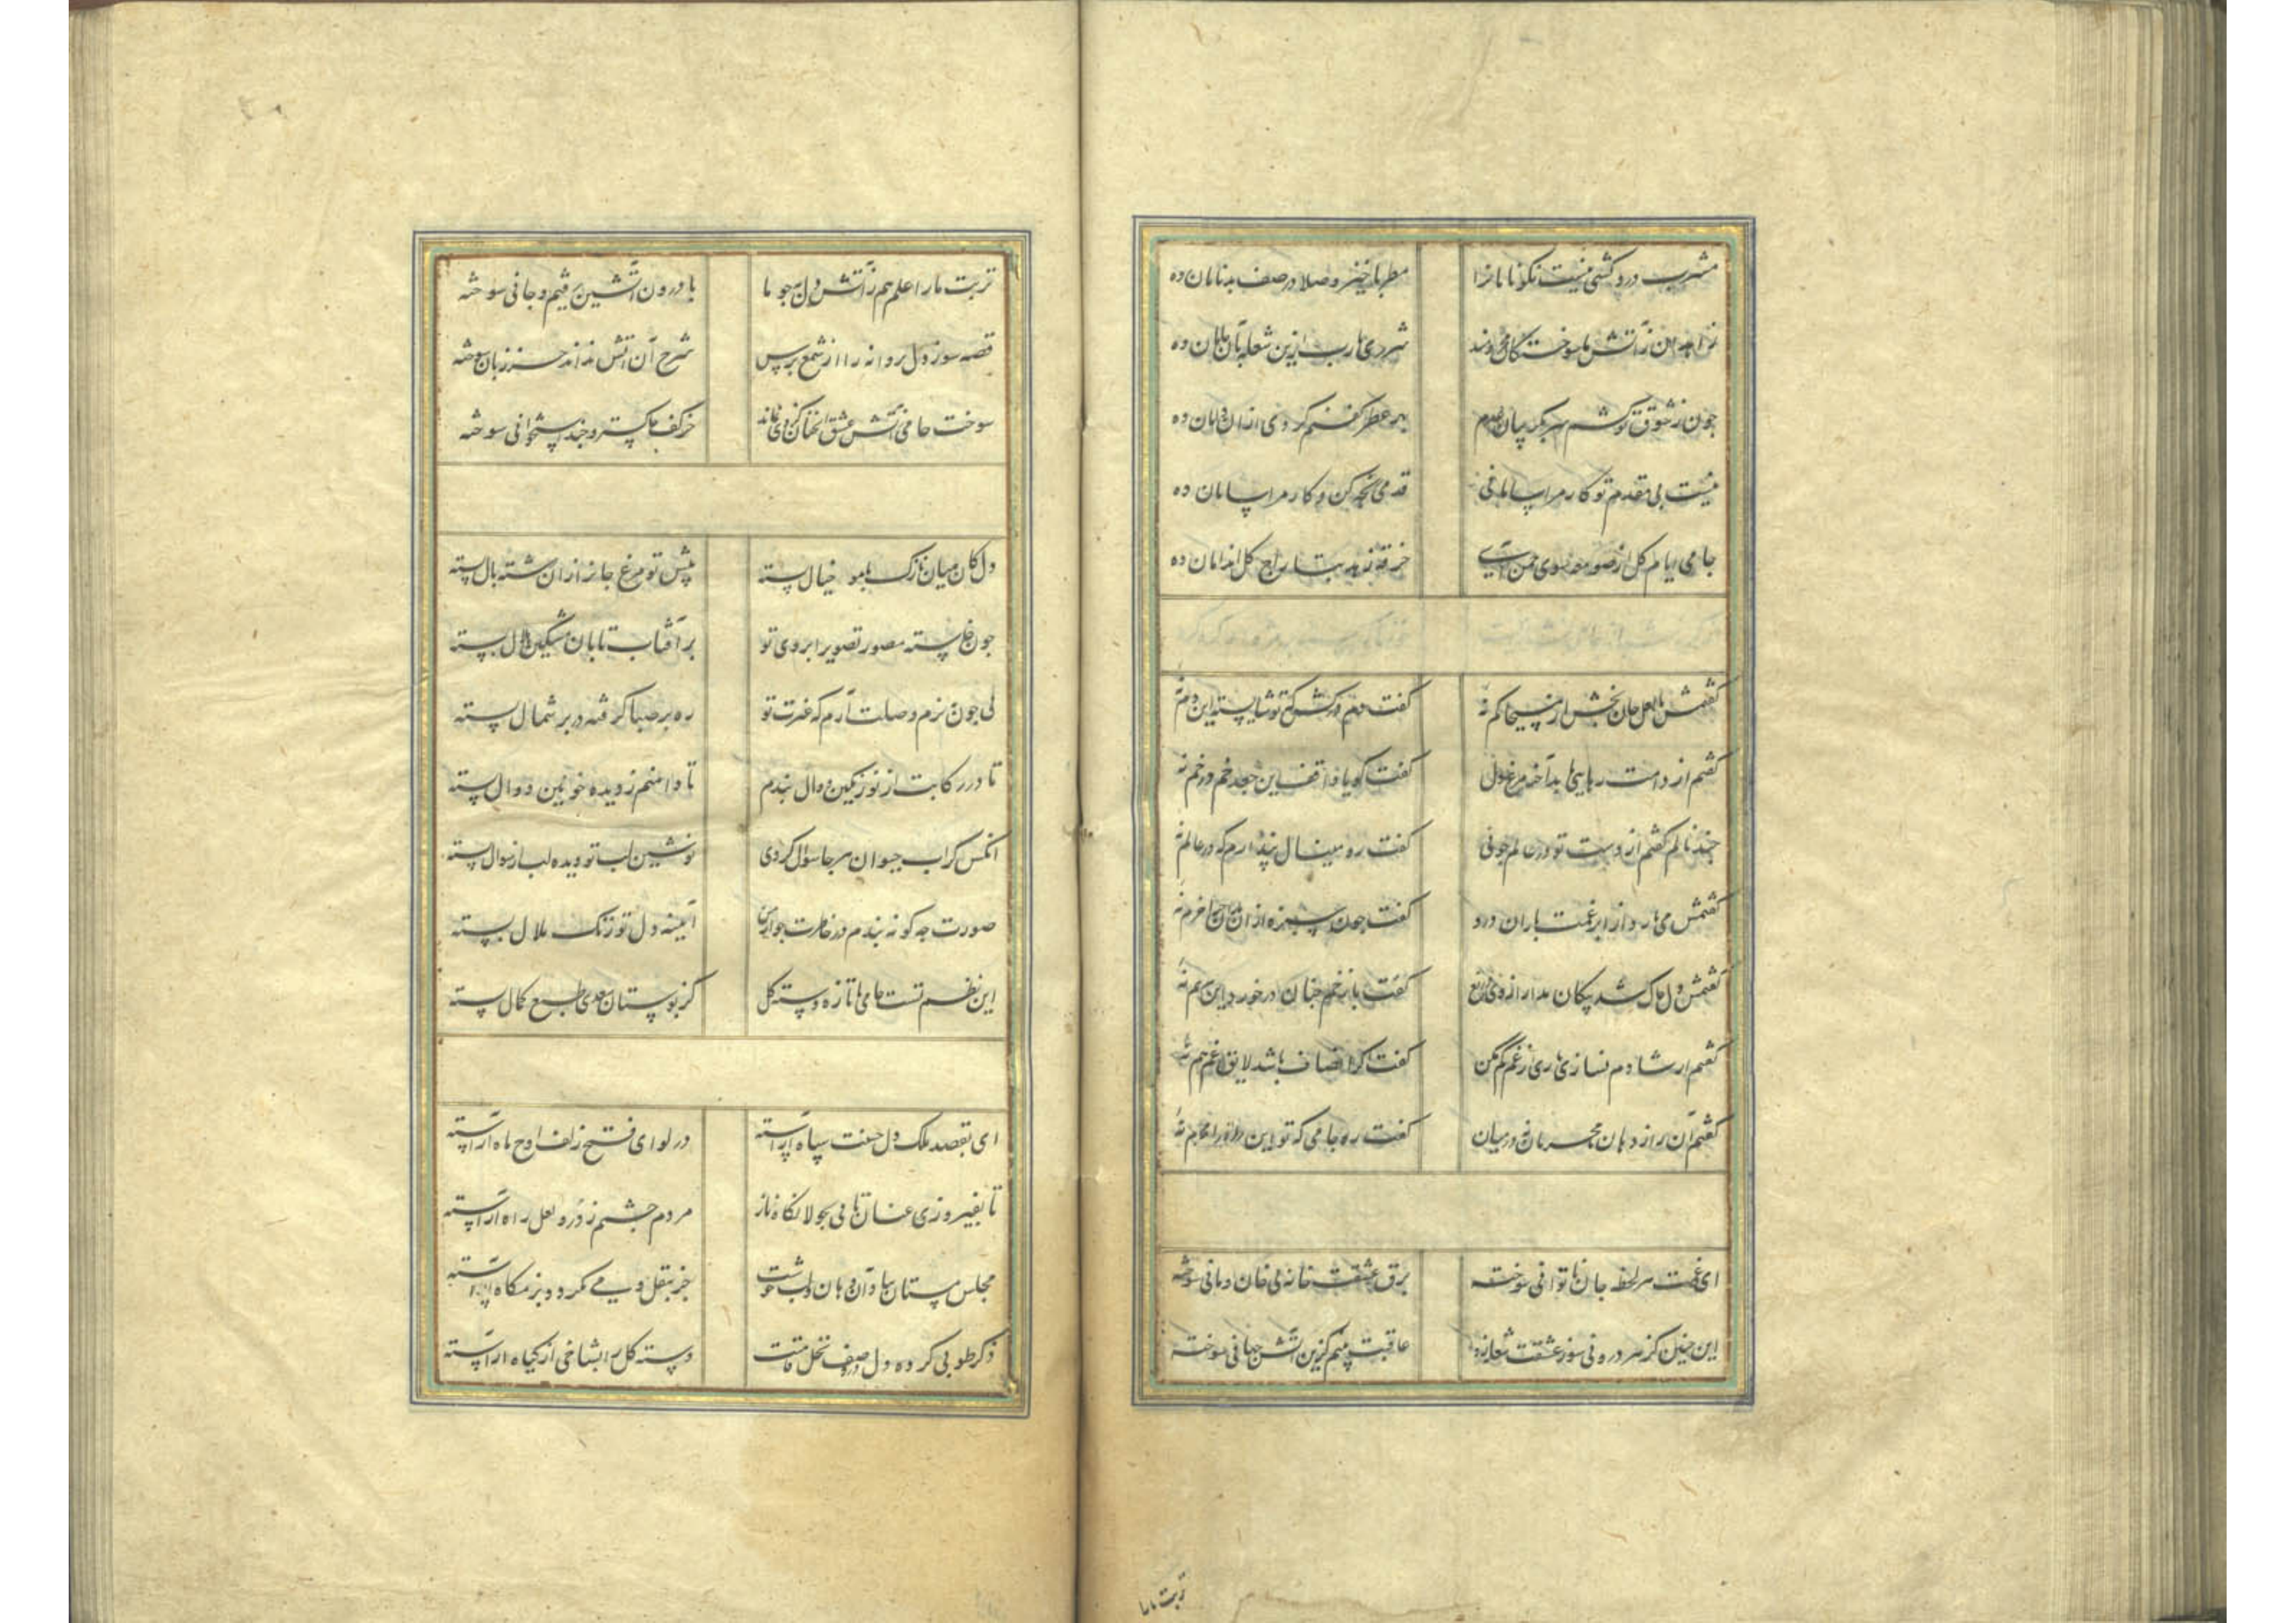 مشرب درد کشی نیست نکونامانرا مطربا خیز و صلا در صف بدنامان ده
زاهدان ز آتش ما سوختگان محرومند شرری یارب ازین شعله بآن خامان ده
چون ز شوق تو کشم سر بگریبان عدم بهر عطر کفنم کردی ازان دامان ده
نیست بی مقدم تو کار مرا سامانی قدمی رنجه کن و کار مرا سامان ده
جامی ایام کل از صومعه سوی چمن آی خرقه زهد بتاراج کل اندامان ده
کفتمش با لعل جان بخش از مسیحا کم نه کفت
کفتم از دامت رهایی یابد آخر مرغ دل کفت کویا واقف این جعد خم در خم نه
چند نالم کفتم از دست تو در عالم چو نی کفت رو مینال پندارم که در عالم نه
کفتمش می بارد از ابر غمت باران درد کفت چون سبزه ازان باران چرا خرم نه
کفتمش دل چاک شد پیکان مدار از وی دریغ کفت با زخم چنان درخورد این مرهم نه
کفتم ار شادم نسازی باری از غم کم مکن کفت اکر انصاف باشد لایق غم هم نه
کفتم آن راز دهان با محرمان نه در میان کفت رو جامی که تو این راز را محرم نه
ای غمت هر لحظه جان ناتوانی سوخته برق عشقت خانه بی خان و مانی سوخته
این چنین کز هر درونی سوز عشقت شعله زد عاقبت بینم کزین آتش جهانی سوخته
تربت ما را
تربت ما را علم هم ز آتش دل به چو ما با درون آتشین رفتیم و جانی سوخته
قصه سوز دل پروانه را از شمع پرس شرح آن آتش نداند جز زبان سوخته
سوخت جامی ز آتش عشق آنچنان کز وی نماند جز کف خاکستر و چند استخوانی سوخته
دل کان میان نازک با مو خیال بسته پیش تو مرغ جان را زان رشته بال بسته
چون نقش بسته مصور تصویر ابروی تو بر آفتاب تابان مشکین هلال بسته
پی چون به بزم وصلت آرم که غیرت تو ره بر صبا کرفته در بر شمال بسته
تا در رکابت از نو رنکین دوال بندم تا دامنم ز دیده خونین دوال بسته
آنکس کز آب حیوان هر جا سؤال کردی نوشین لب تو دیده لب از سوال بسته
صورت چه کونه بندم در خاطرت چو از من آیینه دل تو زنک ملال بسته
این نظم تست جامی یا تازه دسته کل کز بوستان سعدی طبع کمال بسته
ای بقصد ملک دل حسنت سپاه آراسته در لوای فتح زلف اوج ماه آراسته
تا بفیروزی عنان تابی بجولانگاه ناز مردم چشم ز در و لعل راه آراسته
مجلس مستان بیاد آن دهان و لب خوشست جز بنقل و می نکردد بزمکاه آراسته
ذکر طوبی کرده دل در وصف نخل قامتت دسته کل را بشاخی از کیاه آراسته